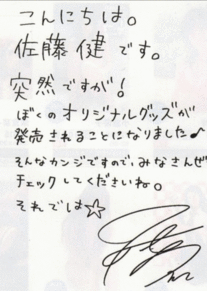 こんにちは。
佐藤健です。
突然ですが!
ぼくのオリジナルグッズが
発売されることになりました♪
そんなカンジですので、みなさんぜ
チェックしてくださいね。
それでは☆